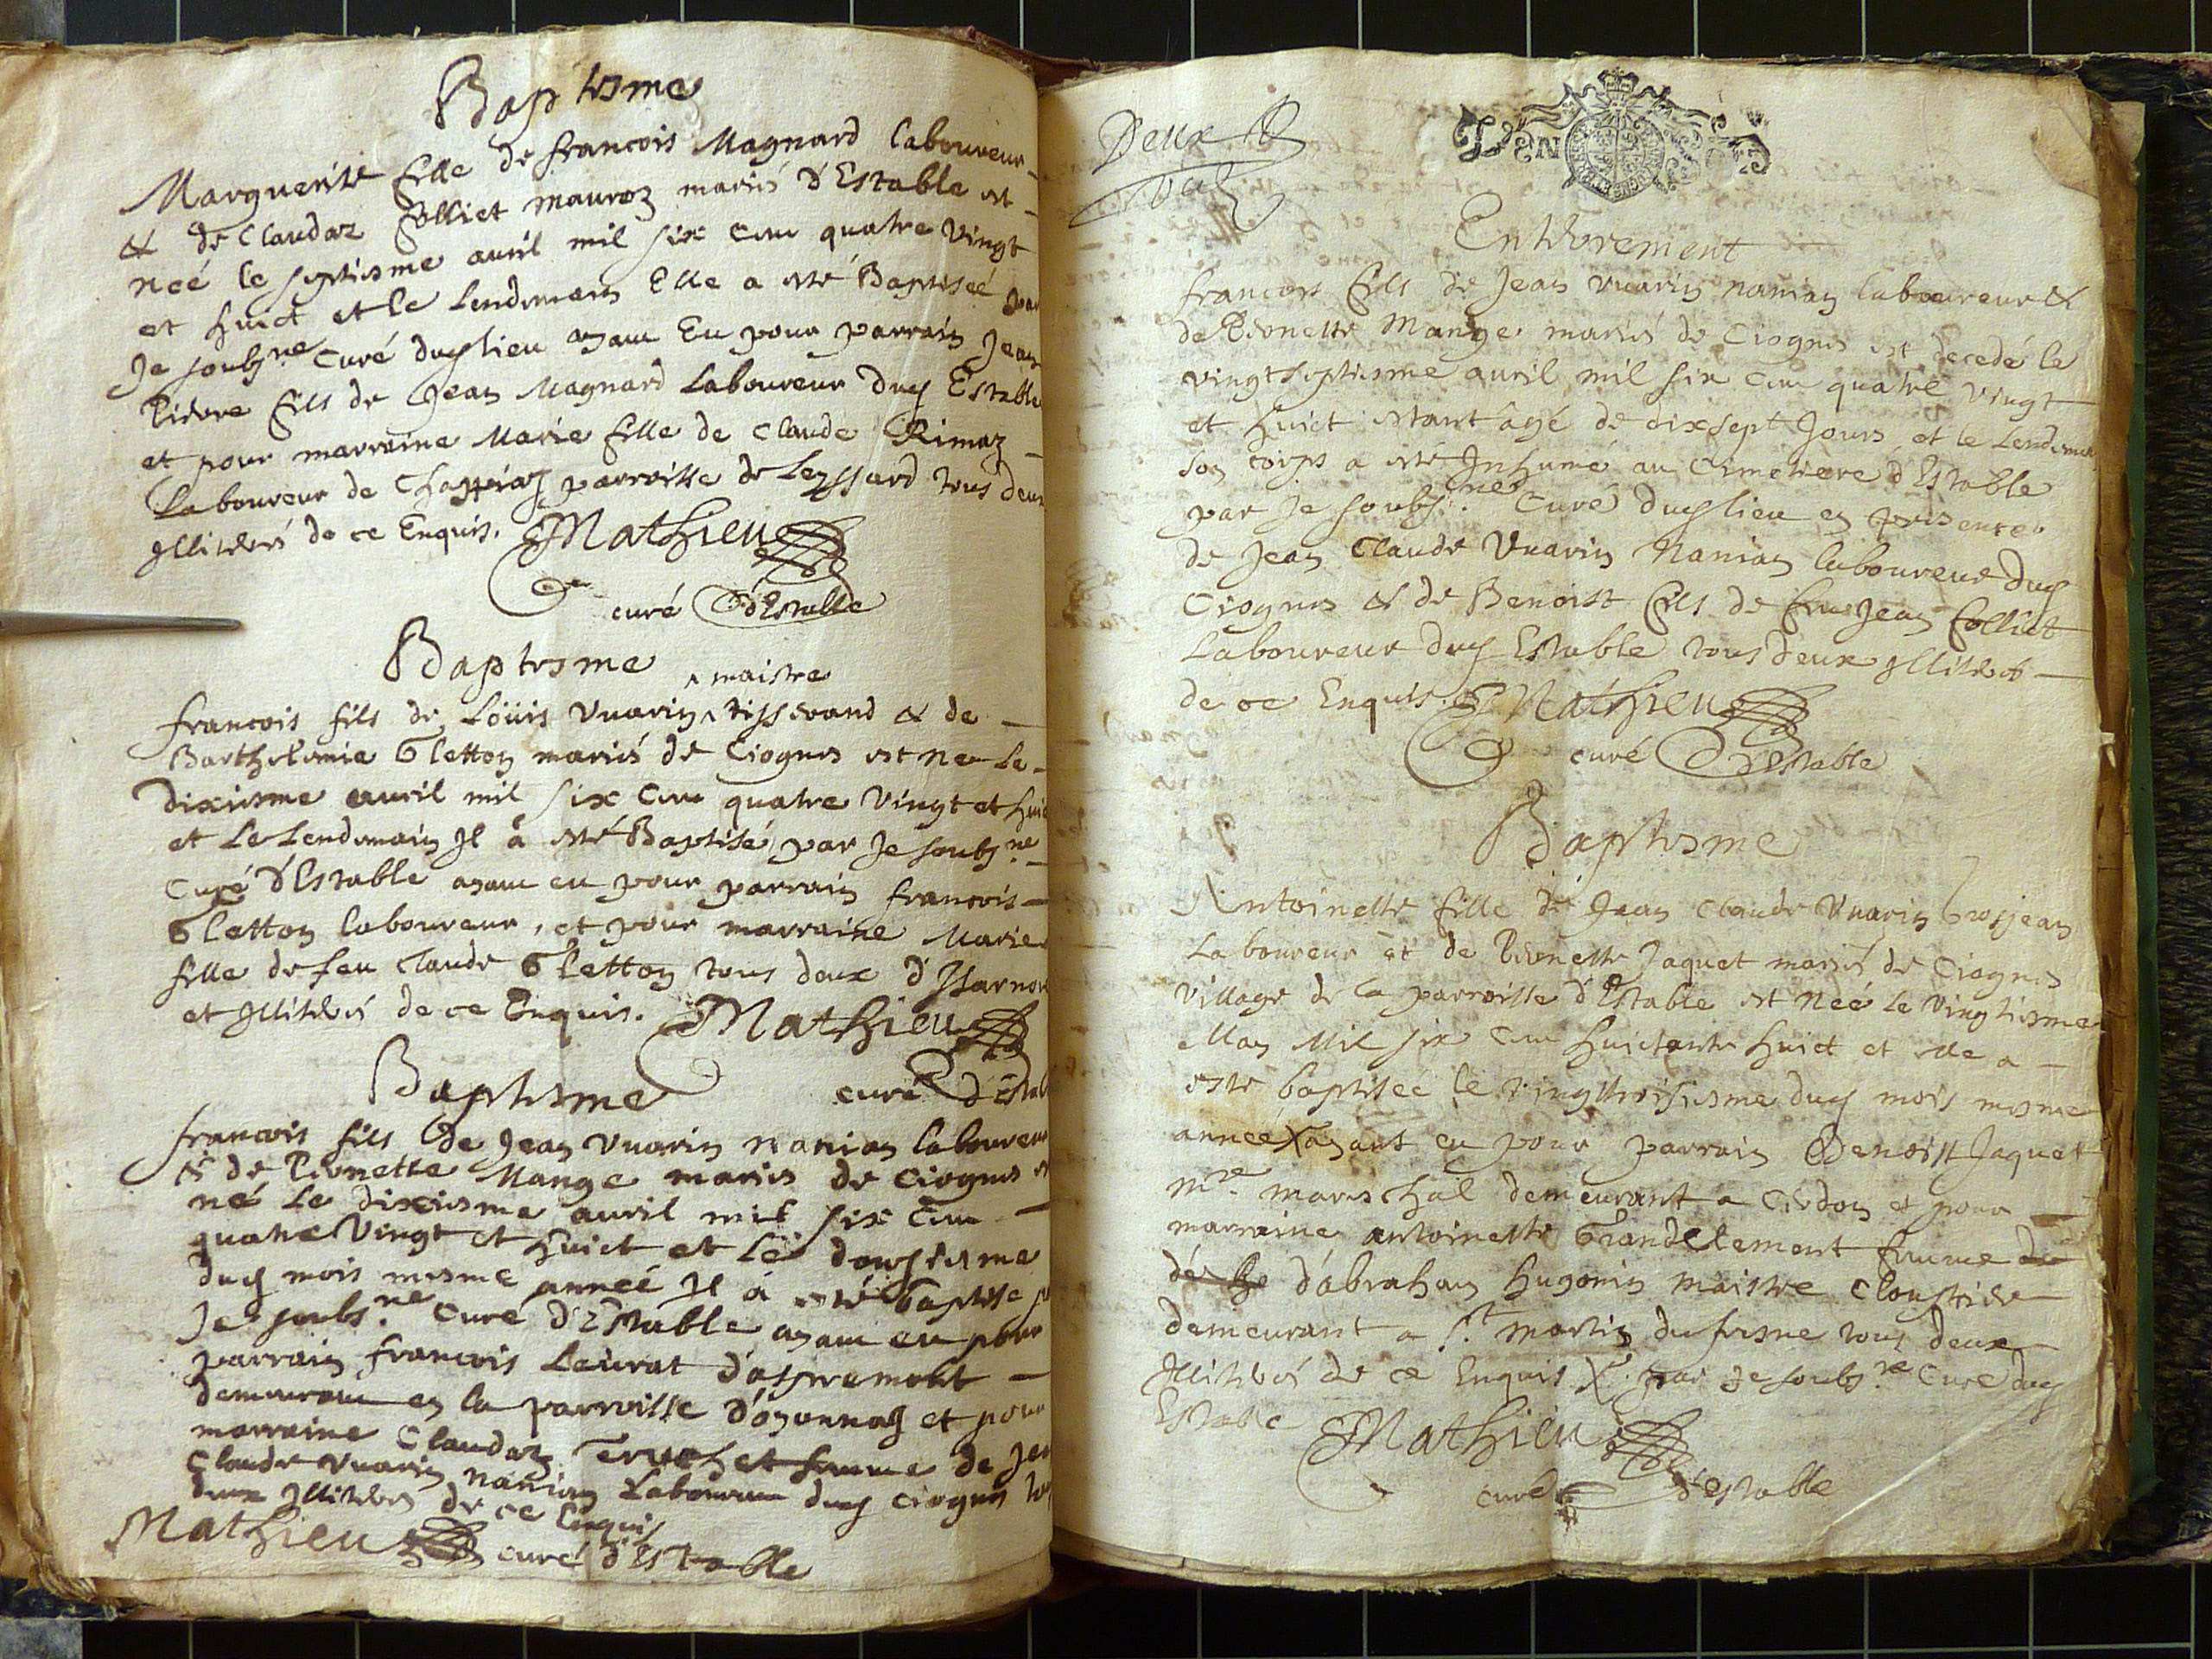 Baptesme
Marguerite fille de francois Magnard laboureur
& de Claudaz Colliet mauroz mariés d'Estable est
neé le septiesme auril mil six cens quatre vingt
et huict et le Lendemain Elle a esté Baptiseé par
Je soubsne. Curé duy lieu ayant Eu pour parrain Jean
Pierre fils de Jean Magnard Laboureur duy Estable
et pour marraine Marie fille de Claude Rimaz
Laboureur de parroisse de Leyssard tous deux
Illiterés de ce Enquis. Mathieu
curé d'Estable
Baptesme
maistre
francois fils de Loüis Vuarin ^ tisserand & de
Barthelemie Gletton mariés de Ciognes est ne Le
Dixiesme auril mil six cens quatre Vingt et huic
et Le Lendemain Il à esté Baptisé par Je soubsne.
Curé d'Estable ayant eu pour parrain francois
Gletton laboureur, et pour marraine Marie
fille de feu Claude Gletton tous deux d'Isarnore
et Illiterés de ce Enquis. Mathieu
Baptesme curé d'Estab
francois fils de Jean Vuarin nanian laboureur
& de Pernette Mange mariés de Ciognes es
né Le dixiesme auril mil six cens
quatre Vingt et huict et Le douziesme
duy mois mesme anneé Il à esté baptise p
Je soubsne. Curé d'Estable ayant eu pour
parrain francois Leurat d'aspremont
demeurant en la parroisse d'oyonnaz et pour
marraine Claudaz femme de Jea
Claude Vuarin nanian Laboureur duy Ciognes to
deux Illiterés de ce Enquis
Mathieu curé d'Estable
Deux S
GEN
Enterrement
francois fils de Jean Vuarin nanian laboureur &
de Pernette Mange mariés de Ciognes est decedé le
vingtseptiesme auril mil six cens quatre Vingt
et huict estant âgé de dixsept Jours et le Lendemai
son corps a esté Inhumé au Cimetiere d'Estable
par Je soubsne. Curé duy lieu en presence
de Jean Claude Vuarin Nanian laboureur duy
Ciognes & de Benoist fils de feu Jean Colliet
Laboureur duy Estable tous deux Illiterés
de ce Enquis. Mathieu
curé d'Estable
Baptesme
Antoinette fille de Jean Claude Vuarin Grosjean
Laboureur et de Pernette Jaquet mariés de Ciognes
Village de la parroisse d'Estable est Neé Le Vingtiesme
May Mil six cens huictante huict et elle a
esté baptiseé le vingttroisiesme duy mois mesme
anneé X ayant eu pour parrain Benoist Jaquet
me. mareschal demeurant a Cerdon et pour
marraine antoinette Grandclement femme de
de d'abraham Hugonin maistre Cloustier
demeurant a St. Martin du fresne tous deux
Illiterés de ce Enquis X. par Je soubsne Curé duy
Estable Mathieu
curé d'Estable